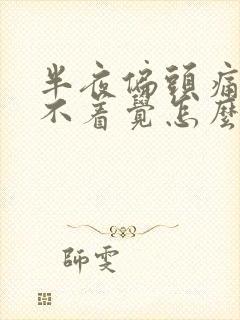 半夜偏頭痛
不着覺怎麼
師雯